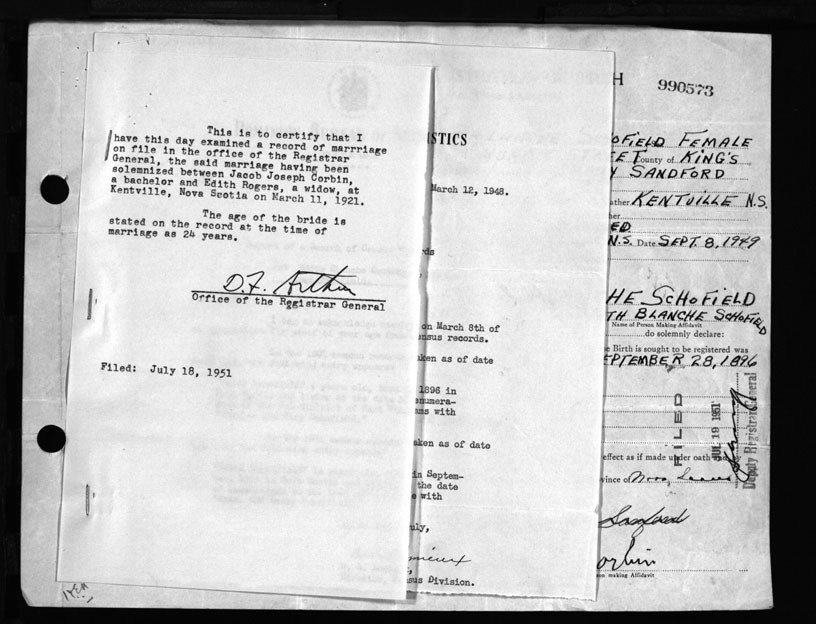 This is to certify that I
have this day examined a record of marrriage
on file in the office of the Registrar
General, the said marriage having been
solemnized between Jacob Joseph Corbin,
a bachelor and Edith Rogers, a widow, at
Kentville, Nova Scotia on March 11, 1921.
The age of the bride is
stated on the record at the time of
marriage as 24 years.
D.F. Arthur
Office of the Registrar General
Filed: July 18, 1951
ISTICS
March 12, 1948.
rds
on March 8th of
ensus records.
aken as of date
1896 in
enumera-
ams with
aken as of date
in Septem-
the date
with
uly,
mieux
sus Division.
H
990573
OFIELD FEMALE
EET County of KING'S
Y SANDFORD
ather KENTVILLE N.S.
her
ED.
N.S. Date SEPT. 8, 1949
HE SCHOFIELD
TH BLANCHE SCHOFIELD
Name of Person Making Affidavit
do solemnly declare:
e Birth is sought to be registered was
EPTEMBER 28, 1896
FILED
JUL 19 1951
Deputy Registrar General
effect as if made under oath and by
vince of Nova Scotia
Sandford
orbin
son making Affidavit